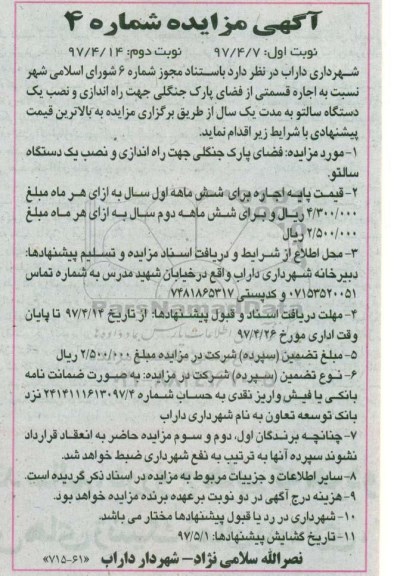 آگهی مزایده شماره ۴
نوبت اول: ۹۷/۴/۷ نوبت دوم: ۹۷/۴/۱۴
شهرداری داراب در نظر دارد باستناد مجوز شماره ۶ شورای اسلامی شهر
نسبت به اجاره قسمتی از فضای پارک جنگلی جهت راه اندازی و نصب یک
دستگاه سالتو به مدت یک سال از طریق برگزاری مزایده به بالاترین قیمت
پیشنهادی با شرایط زیر اقدام نماید.
۱- مورد مزایده: فضای پارک جنگلی جهت راه اندازی و نصب یک دستگاه
سالتو.
۲- قیمت پایه اجاره برای شش ماهه اول سال به ازای هر ماه مبلغ
۴/۳۰۰/۰۰۰ ریال و برای شش ماهه دوم سال به ازای هر ماه مبلغ
۲/۵۰۰/۰۰۰ ریال
۳- محل اطلاع از شرایط و دریافت اسناد مزایده و تسلیم پیشنهادها:
دبیرخانه شهرداری داراب واقع در خیابان شهید مدرس به شماره تماس
۰۷۱۵۳۵۲۰۰۵۱ و کدپستی ۷۴۸۱۸۶۵۳۱۷
۴- مهلت دریافت اسناد و قبول پیشنهادها: از تاریخ ۹۷/۴/۱۴ تا پایان
وقت اداری مورخ ۹۷/۴/۲۶
۵- مبلغ تضمین (سپرده) شرکت در مزایده مبلغ ۲/۵۰۰/۰۰۰ ریال
۶- نوع تضمین (سپرده) شرکت در مزایده: به صورت ضمانت نامه
بانکی یا فیش واریز نقدی به حساب شماره ۲۴۱۴۱۱۱۶۱۳۰۹۷/۴ نزد
بانک توسعه تعاون به نام شهرداری داراب
۷- چنانچه برندگان اول، دوم و سوم مزایده حاضر به انعقاد قرارداد
نشوند سپرده آنها به ترتیب به نفع شهرداری ضبط خواهد شد.
۸- سایر اطلاعات و جزییات مربوط به مزایده در اسناد ذکر گردیده است.
۹- هزینه درج آگهی در دو نوبت برعهده برنده مزایده خواهد بود.
۱۰- شهرداری در رد یا قبول پیشنهادها مختار می باشد.
۱۱- تاریخ گشایش پیشنهادها: ۹۷/۵/۱
نصرالله سلامی نژاد- شهردار داراب «۷۱۵-۶۱»